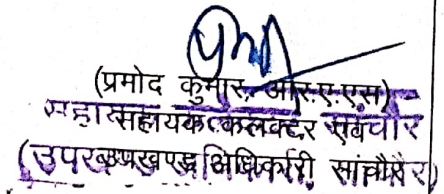 (प्रमोद कुमार, आर.ए.एस)
सहायक कलक्टर सांचौर
(उपखण्ड अधिकारी सांचौर)